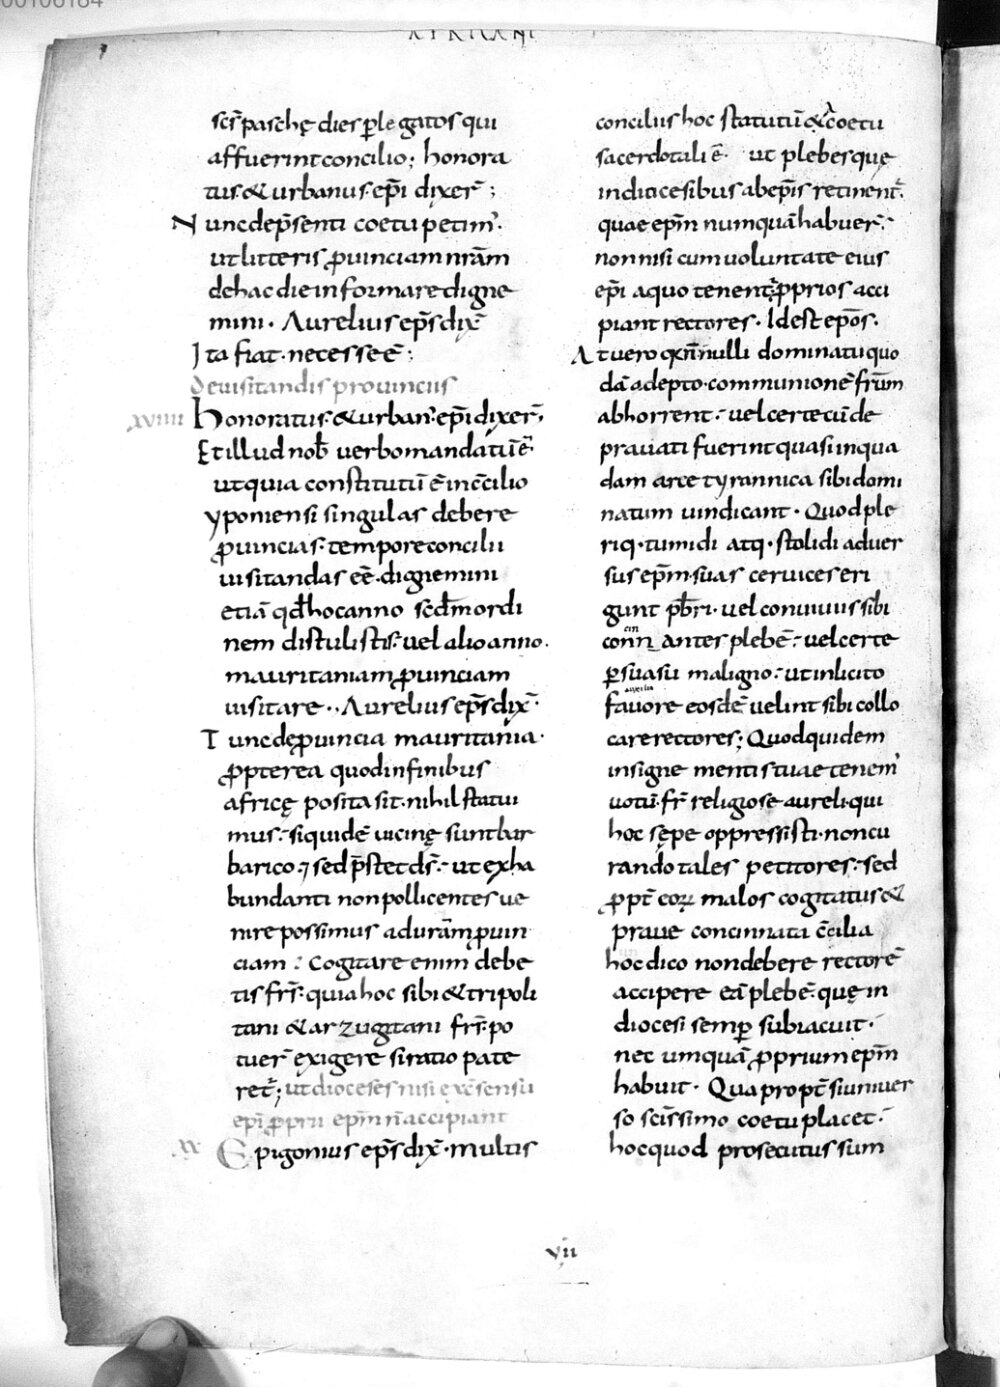 00106184
AFRICANI
scs̄ paschę dies p̲ legatos qui
affuerint concilio; honora
tus & urbanus ep̄i dixer̄;
Nunc de p̄senti coetu petim'.
ut litteris p̲uinciam nr̄am
de hac die informare digne
mini. Aurelius ep̄s dix̄
Ita fiat necesse ē;
De uisitandis prouinciis
xviiii Honoratus & urban' ep̄i dixer̄;
Et illud nob̄ uerbo mandatū ē
ut quia constitutū ē in c̄cilio
yponiensi singulas debere
p̲uincias tempore concilii
uisitandas eē digne mini
etiā qd̄ hoc anno scd̄m ordi
nem distulistis: uel alio anno.
mauritaniam p̲uinciam
uisitare. Aurelius ep̄s dix̄.
Tunc de p̲uincia mauritania.
p̲pterea quod in finibus
africę posita sit. nihil statui
mus: siquidē uicinę sunt bar
barico; sed p̄stet ds̄: ut ex ha
bundanti non pollicentes ue
nire possimus ad urām p̲uin
ciam: Cogitare enim debe
tis fr̄s. quia hoc sibi & tripoli
tani & arzugitani fr̄s. po
tuer̄ exigere si ratio pate
ret̄; ut dioceses nisi ex c̄sensu
ep̄i p̲prii ep̄m n̄ accipiant
xx Epigonius ep̄s dix̄. multis
conciliis hoc statutū & a coetu
sacerdotali ē. ut plebes quę
in diticesibus ab ep̄is retinent̄.
quae ep̄m numquā habuer̄.
non nisi cum uoluntate eius
ep̄i a quo tenent̄ p̲prios acci
piant rectores. Id est ep̄os.
At uero q̄ nnulli dominatu quo
dā adepto communionē fr̄um
abhorrent: uel certe cū de
prauati fuerint quasi in qua
dam arce tyrannica sibi domi
natum uindicant. Quod ple
riq. tumidi atq. stolidi aduer
sus ep̄m suas ceruices eri
gunt pb̄ri. uel conuiuiis sibi
connantes plebē: uel certe
p̲ suasu maligno: ut inlicito
fauore eosdē uelint sibi collo
care rectores; Quod quidem
insigne mentis tuae tenem'
uotū fr̄ religiose aureli. qui
hoc sępe oppressisti. non cu
rando tales petitores: sed
p̲pt̄ eor̄ malos cogitatus &
praue concinnata c̄cilia
hoc dico non debere rectorē
accipere eā plebē. quę in
diocesi semp̲ subiacuit.
nec umquā p̲prium ep̄m
habuit. Quapropt̄ si uniuer
so scs̄simo coetu placet:
hoc quod prosecutus sum
vii